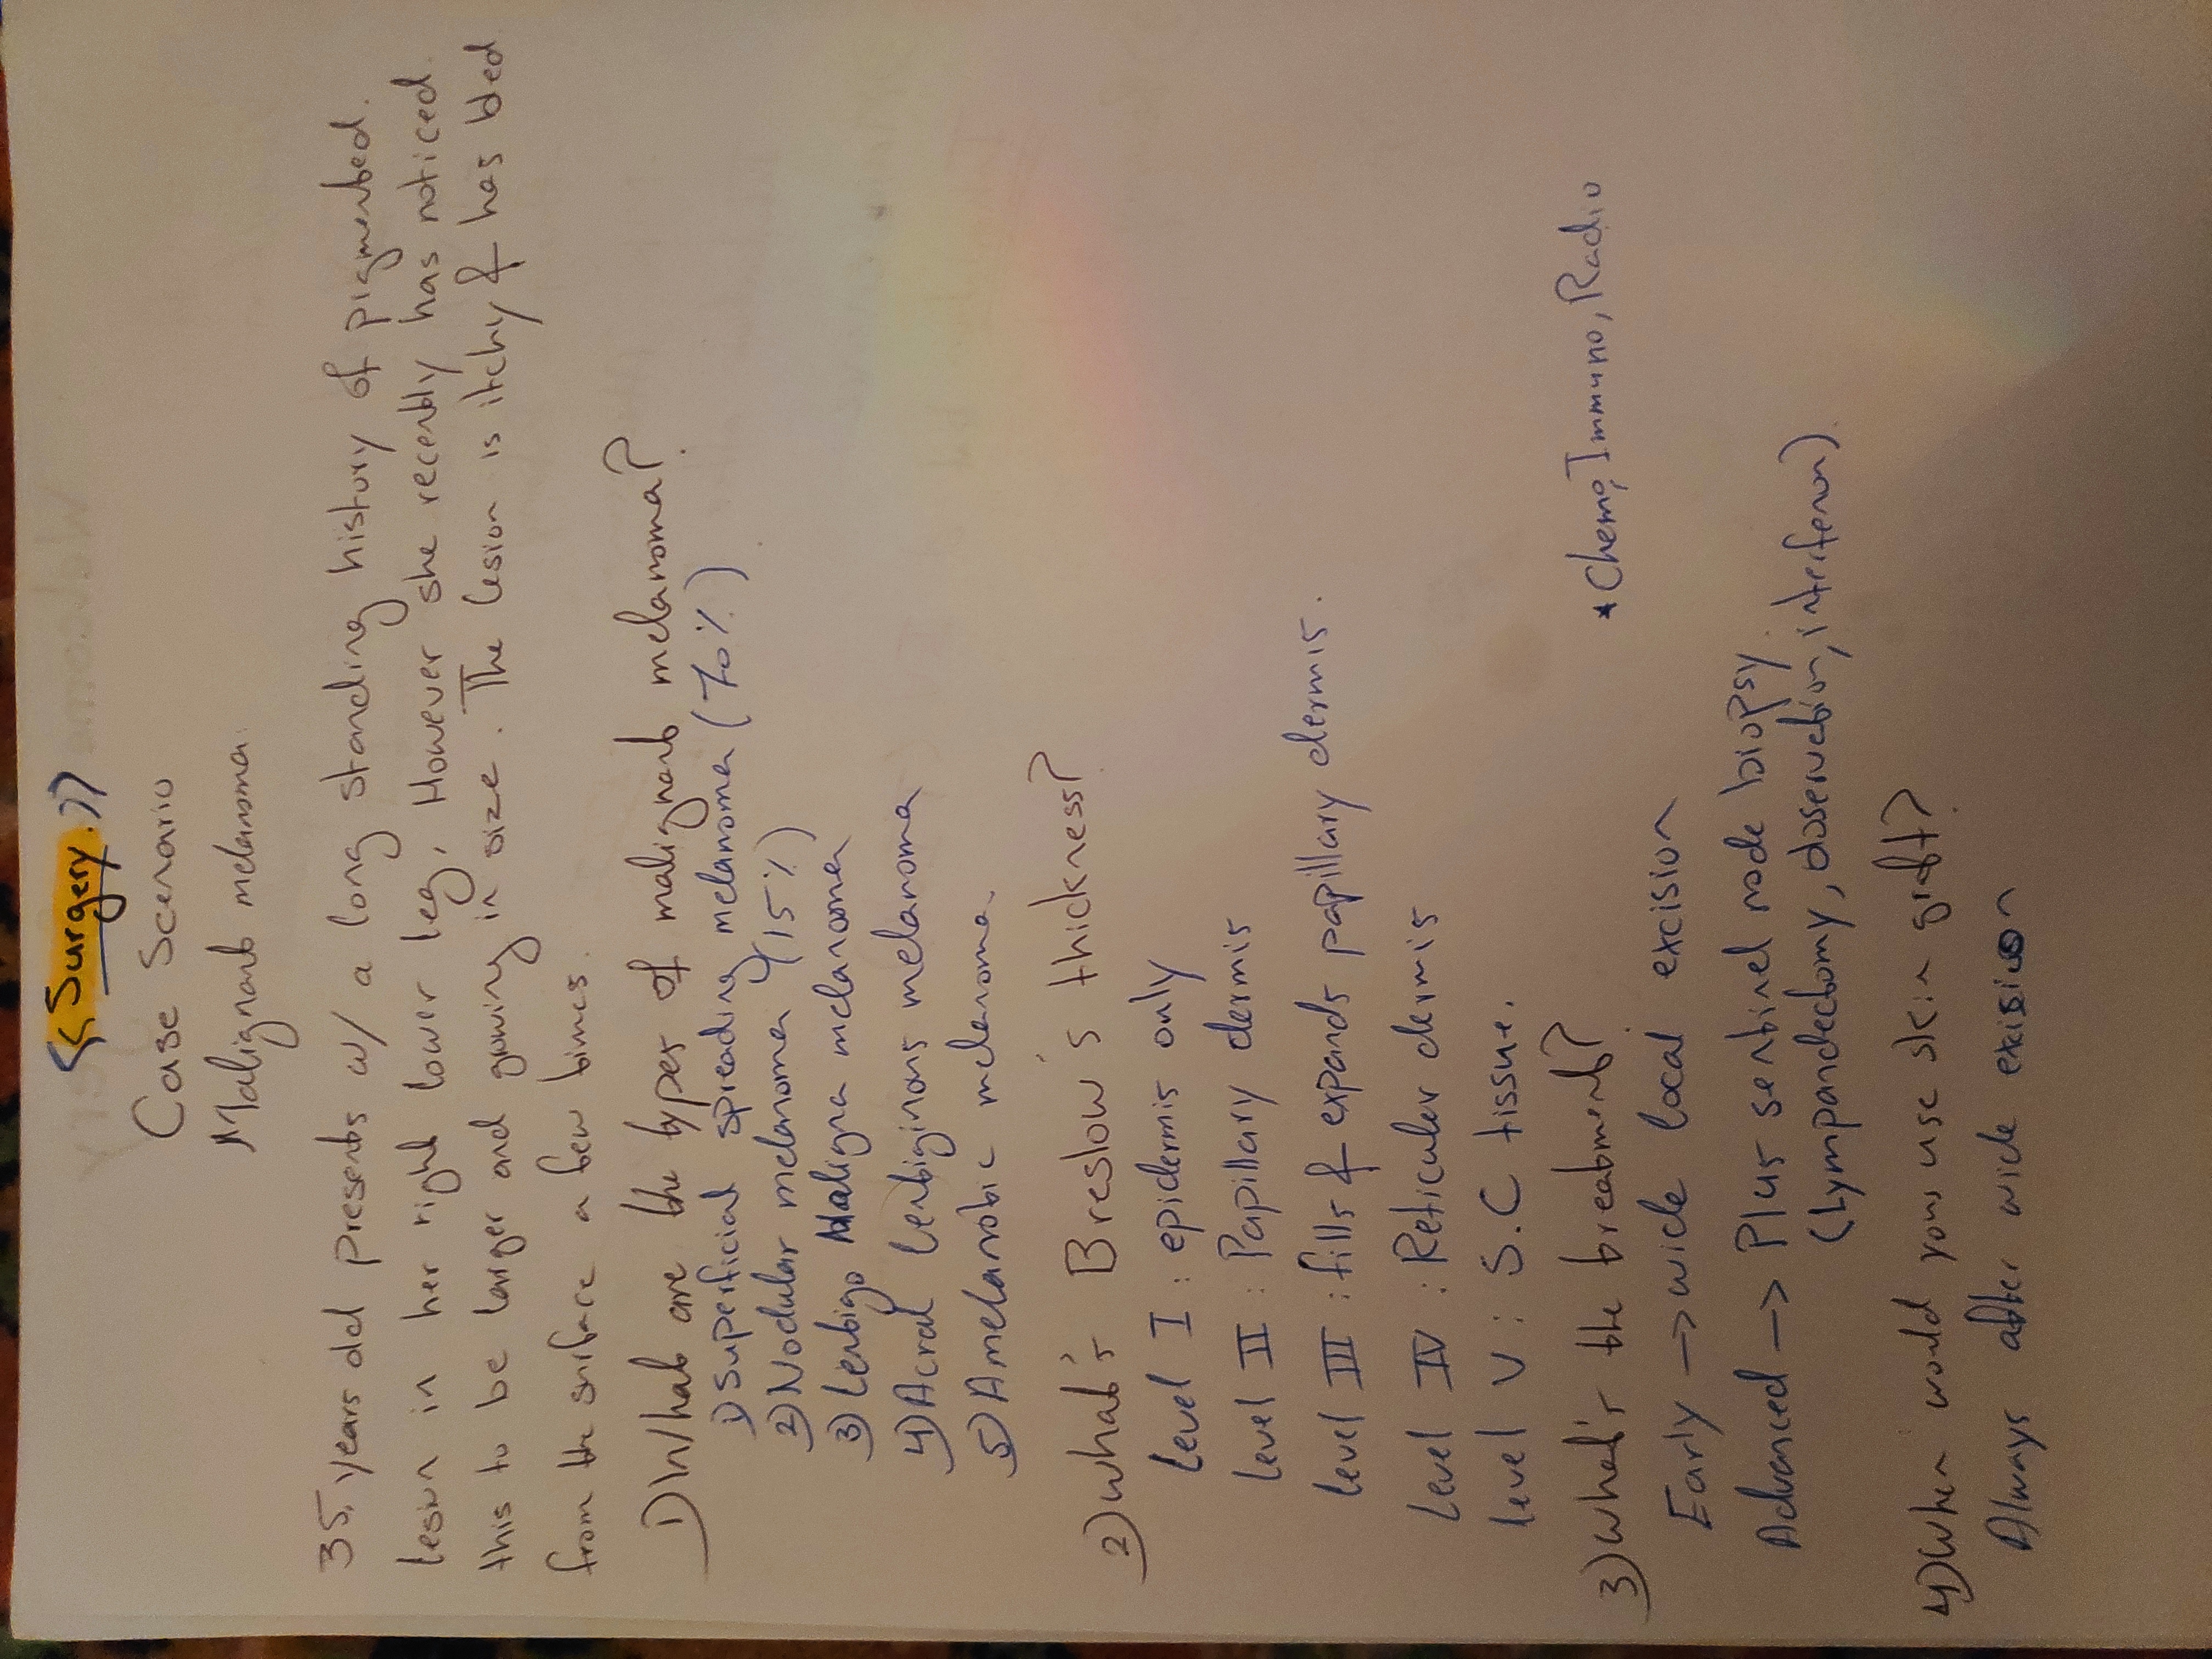 <<Surgery.>>
Case Scenario
Malignant melanoma.
35, years old presents w/ a long standing history of pigmented.
lesion in her right lower leg, However she recently has noticed
this to be larger and growing in size. The lesion is itchy & has bled
from the surface a few times.
1) What are the types of malignant melanoma?
1) Superficial spreading melanoma (70%)
2) Nodular melanoma (15%)
3) Lentigo Maligna melanoma
4) Acral Lentiginous melanoma
5) Amelanotic melanoma.
2) what's Breslow's thickness?
Level I : epidermis only
Level II : Papillary dermis
Level III : fills & expands papillary dermis.
Level IV : Reticular dermis
Level V : S.C tissue.
3) What's the treatment?
*Chemo, Immuno, Radio
Early -> wide local excision
Advanced -> Plus sentinel node biopsy.
(Lympandectomy, observation, interferon).
4) When would you use skin graft?
Always after wide excision